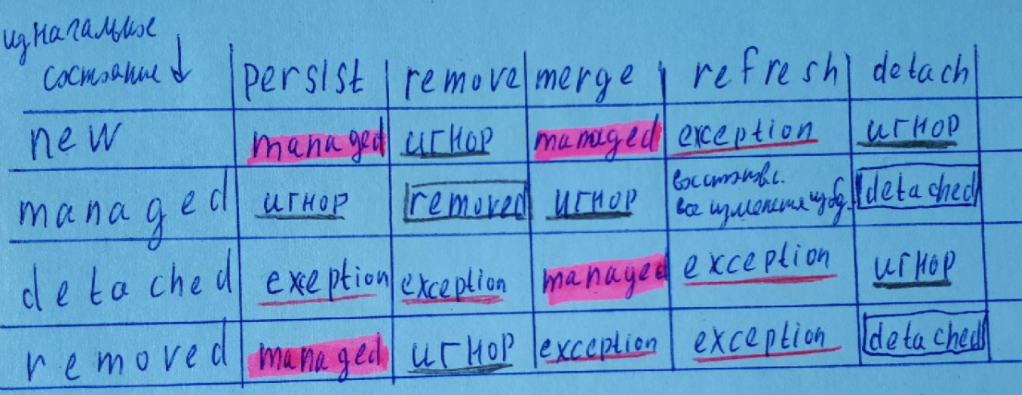 изначальное
состояние ↓ persist remove merge refresh detach
new managed игнор managed exception игнор
managed игнор removed игнор восстановл. detached
все изменения из бд.
detached exception exception managed exception игнор
removed managed игнор exception exception detached